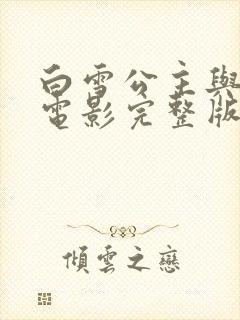 白雪公主與
電影完整版
傾雲之戀